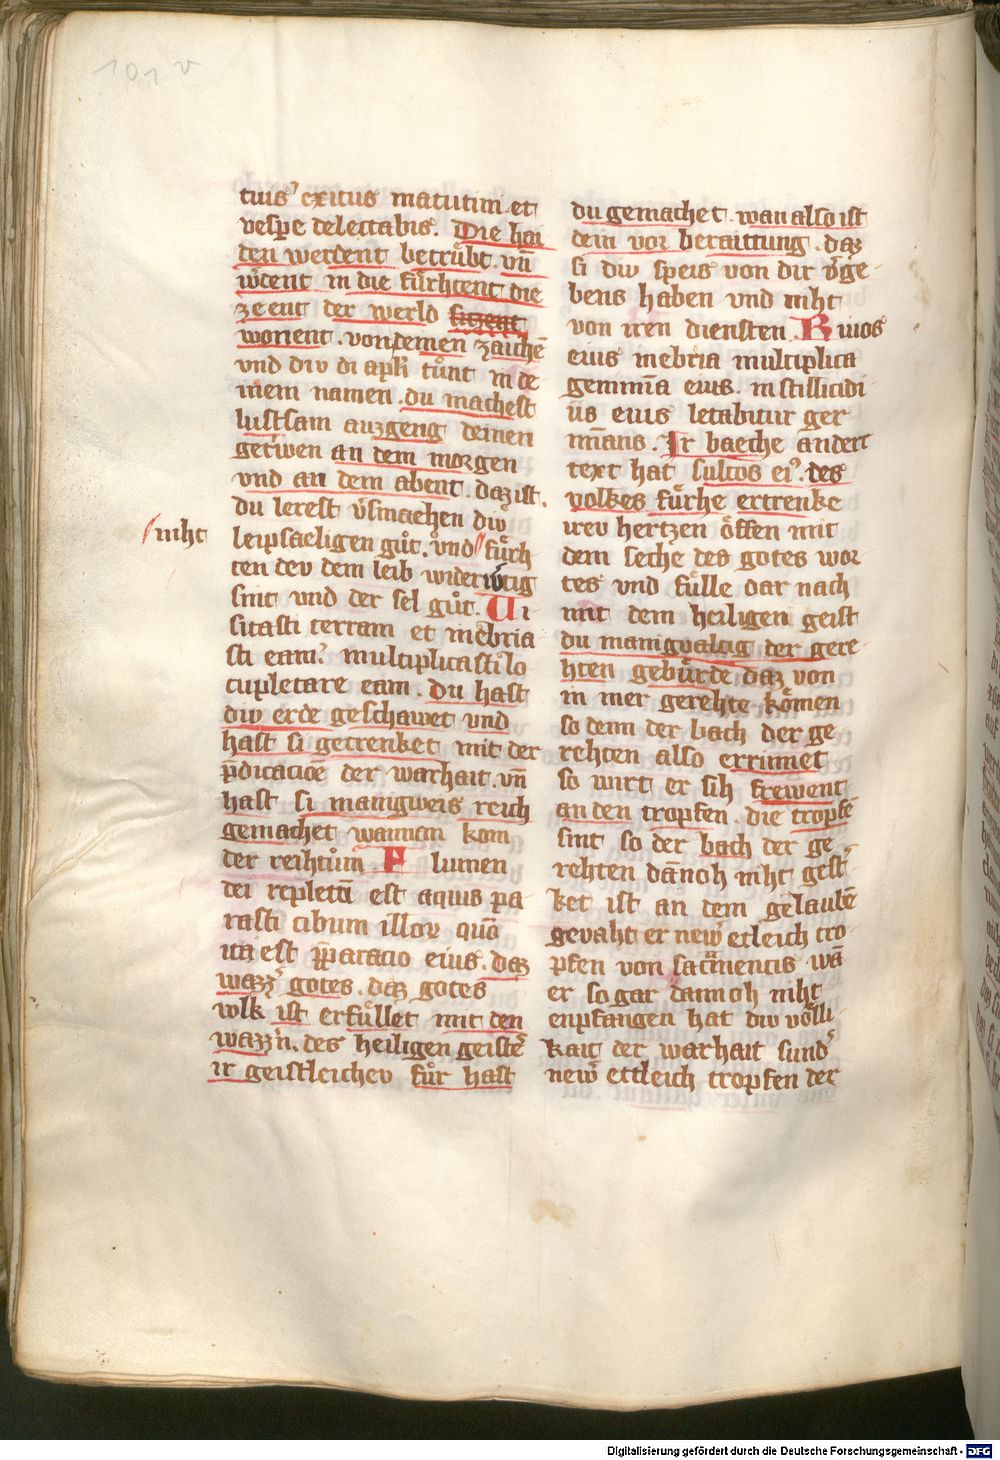 101 v
tuis exitus matutini et
vesp̄e delectabis. Die hai
den werdent betrůbt. vn̄
w̓dent in die fůrhtent die
ze ent der werld sitzent
wonent. von deinen zaichē
vnd div di apl̄i tůnt in de
inem namen. du machest
lustsam auzgeng deinen
getwen an dem morgen
vnd an dem abent. daz ist.
du lerest v̓smaehen div
niht
leipsaeligen gůt. vnd fůrh
ten dev dem leib widerw̓tig
sint vnd der sel gůt. Ui
sitasti terram et inebria
sti eam. multiplicasti lo
cupletare eam. Du hast
div erde geschawet vnd
hast si getrenket mit der
p̄dicatiōe der warhait. vn̄
hast si manigweis reich
gemachet wannan kom
der reihtům. Flumen
dei repletū est aquis pa
rasti cibum illor quō
ita est p̄paratio eius. daz
wazz̓ gotes. daz gotes
volk ist erfůllet mit den
wazz̓n. des heiligen geistes
ir geistleichev fůr hast
du gemachet. wan also ist
dein vor beraittung. daz
si div speis von dir v̓ge-
bens haben vnd niht
von iren diensten. Riuos
eius inebria multiplica
gemmīa eius. in stillicidi
is eius letabitur ger
minans. Ir baeche andert
text hat sulcos ei̓. des
volkes fůrhe ertrenke
irev hertzen ôffen mit
dem seche des gotes wor
tes vnd fůlle dar nach
mit dem heiligen geist
du manigvaltig der gere-
hten gebůrde. daz von
in mer gerehte kômen
so denn der bach der ge
rehten also errinnet
so wirt er sih frewent
an den tropfen. die tropfē
sint so der bach der ge
rehten dānoh niht gest̓
ket ist an dem gelaubē
gevaht er new̓ etleich tro-
pfen von sac̄mentis wā
er so gar dannoh niht
enpfangen hat div vôlli-
kait der warhait sund̓
new̓ ettleich tropfen der
Digitalisierung gefördert durch die Deutsche Forschungsgemeinschaft - DFG